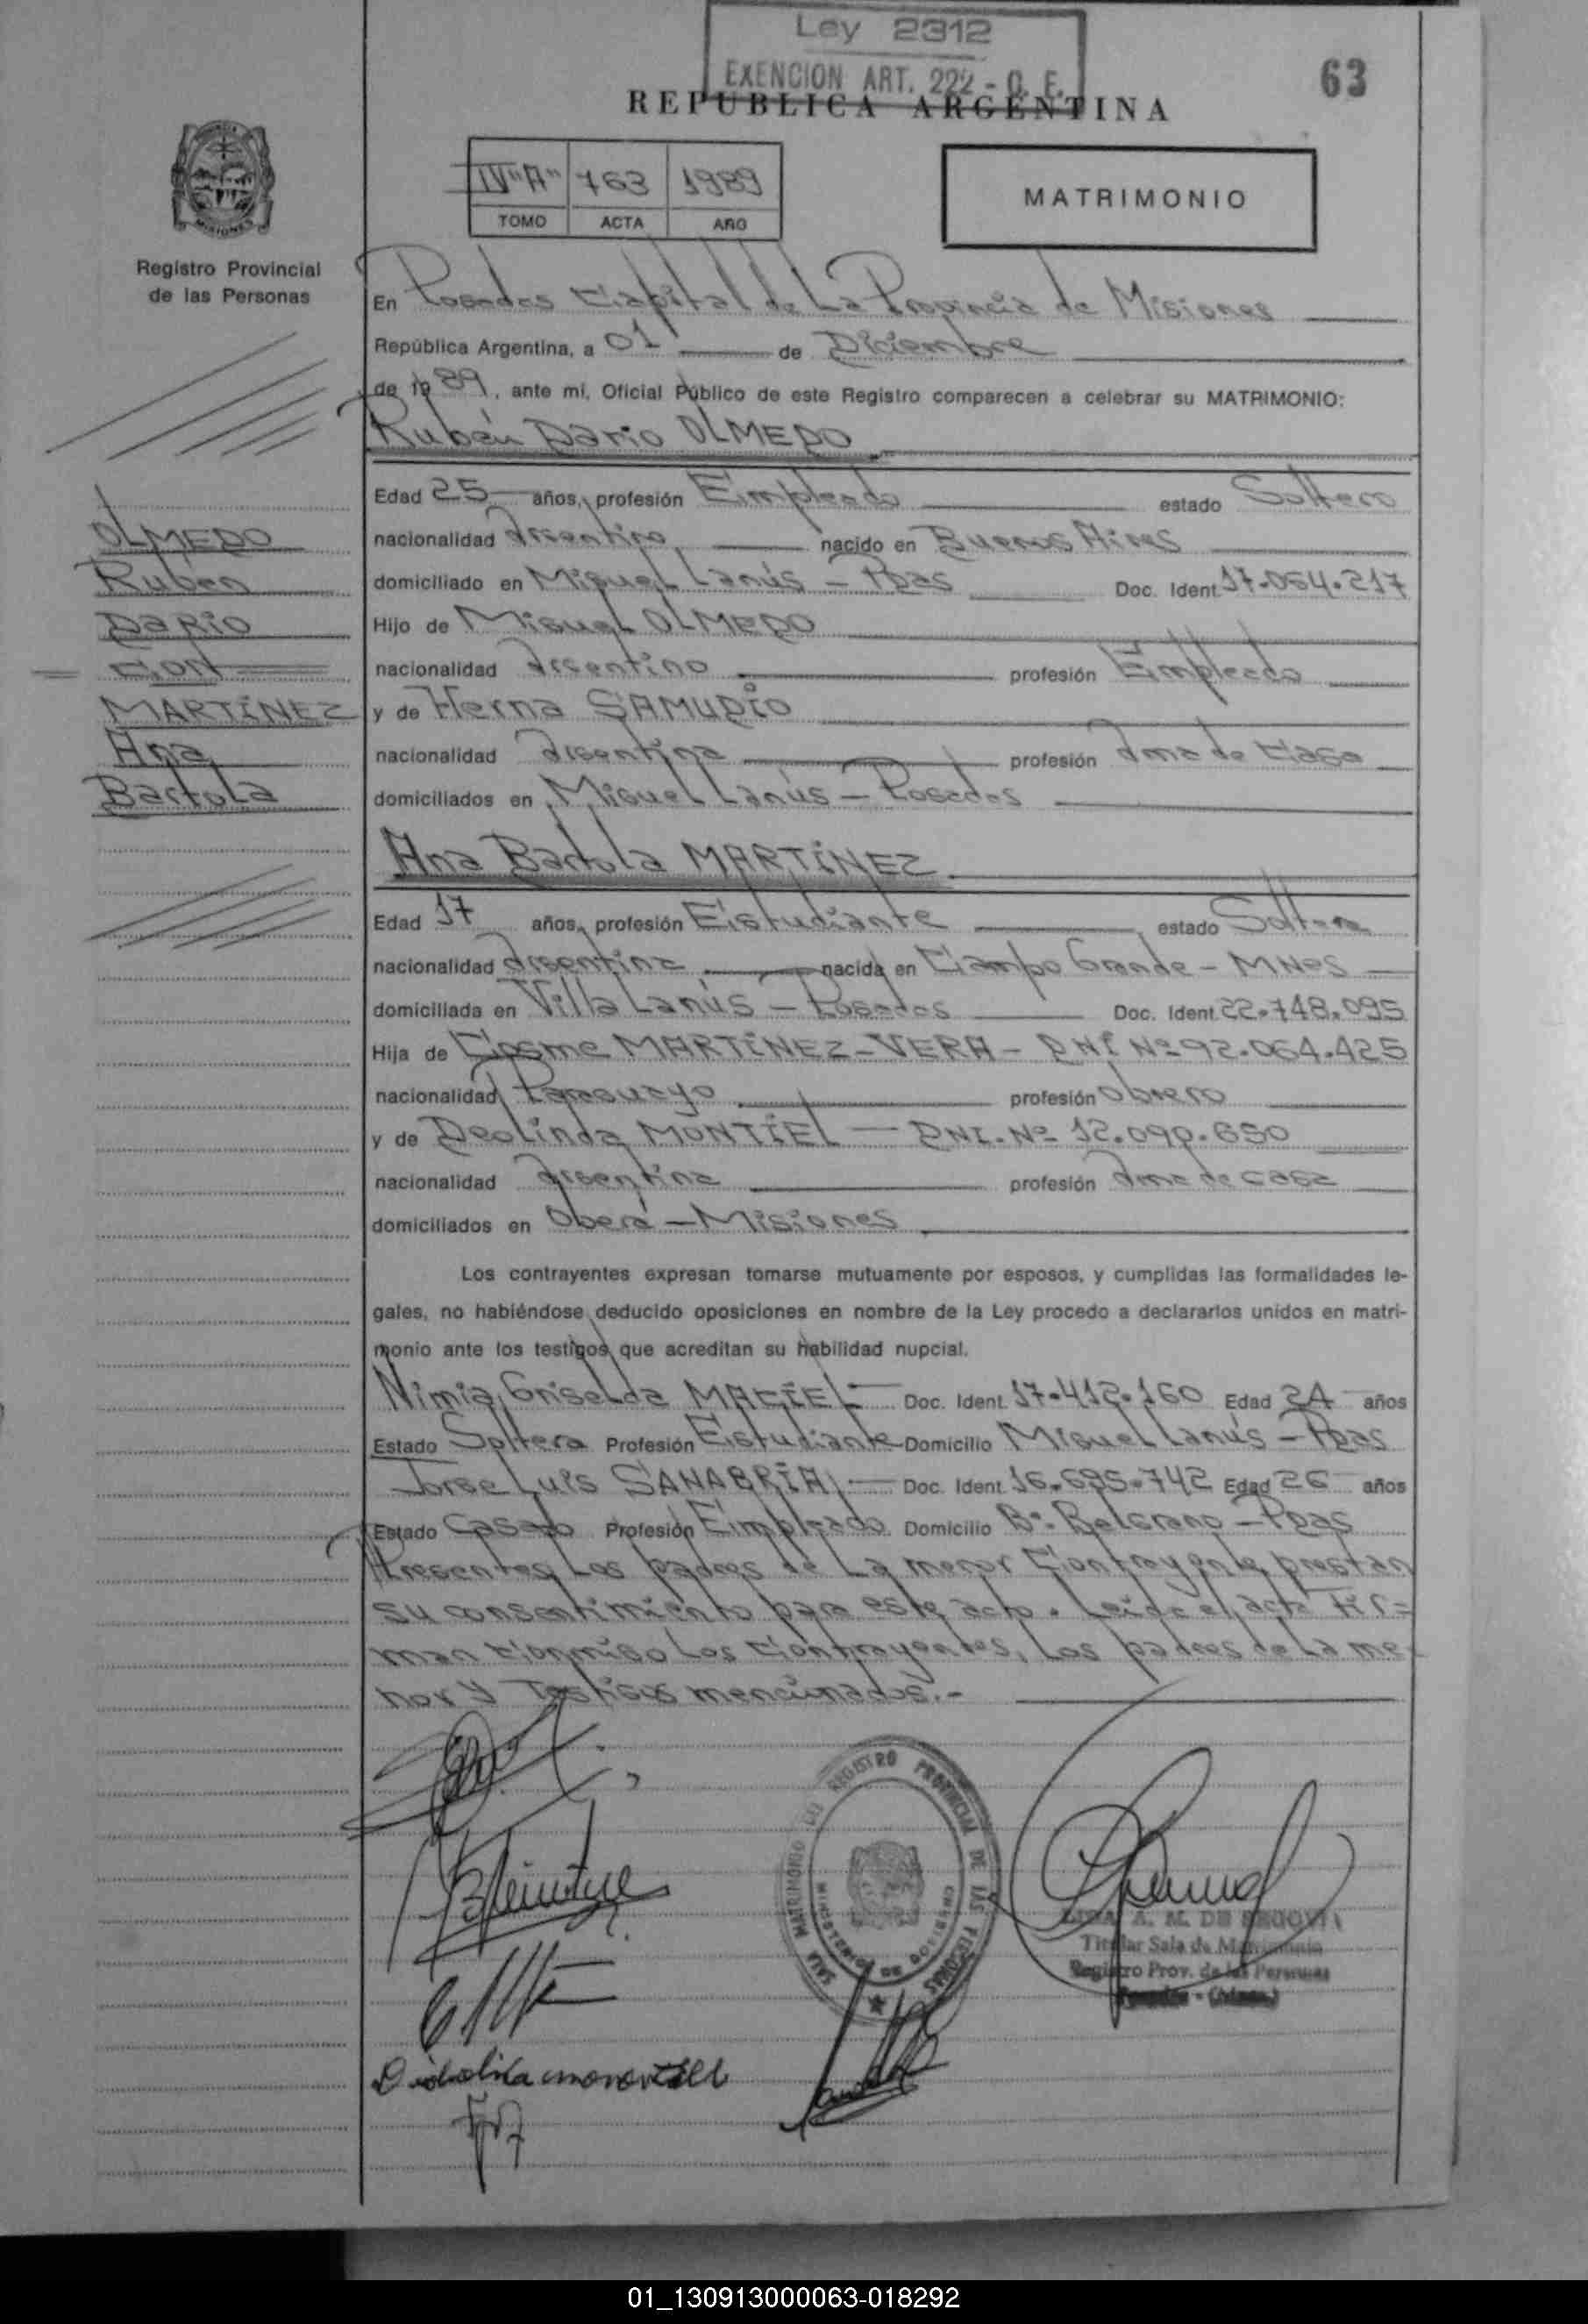 Ley 2312
EXENCION ART. 222 - C. F.
63
REPUBLICA ARGENTINA
IV "A" 763 1989
TOMO ACTA AÑO
MATRIMONIO
MISIONES
Registro Provincial
de las Personas
En Posadas Capital de La Provincia de Misiones
República Argentina, a 01 de Diciembre
de 1989, ante mi, Oficial Público de este Registro comparecen a celebrar su MATRIMONIO:
Rubén Dario OLMEDO
Edad 25 años, profesión Empleado estado Soltero
OLMEDO
nacionalidad Argentino nacido en Buenos Aires
Ruben
domiciliado en Miguel Lanús - Pdas Doc. Ident. 17.054.217
Dario
Hijo de Miguel OLMEDO
CON
nacionalidad Argentino profesión Empleado
MARTÍNEZ
y de Herna SAMUDIO
Ana
nacionalidad Argentina profesión Ama de Casa
Bartola
domiciliados en Miguel Lanús - Posadas
Ana Bartola MARTÍNEZ
Edad 17 años, profesión Estudiante estado Soltera
nacionalidad Argentina nacida en Campo Grande - MNES
domiciliada en Villa Lanús - Posadas Doc. Ident. 22.748.095
Hija de Cosme MARTÍNEZ - VERA - DNI Nº 92.064.425
nacionalidad Paraguayo profesión Obrero
y de Deolinda MONTIEL - DNI. Nº 12.090.650
nacionalidad Argentina profesión Ama de casa
domiciliados en Oberá - Misiones
Los contrayentes expresan tomarse mutuamente por esposos, y cumplidas las formalidades le-
gales, no habiéndose deducido oposiciones en nombre de la Ley procedo a declararlos unidos en matri-
monio ante los testigos que acreditan su habilidad nupcial.
Nimia Griselda MACIEL - Doc. Ident. 17.412.160 Edad 24 años
Estado Soltera Profesión Estudiante Domicilio Miguel Lanús - Pdas
Jorge Luis SANABRIA - Doc. Ident. 16.695.742 Edad 26 años
Estado Casado Profesión Empleado Domicilio Bº. Belgrano - Pdas
Presentes Los padres de La menor Contrayente prestan
su consentimiento para este acto. Leída el acta Fir=
man conmigo Los Contrayentes, Los padres de La me
nor y Testigos mencionados.-
SALA MATRIMONIO DEL REGISTRO PROVINCIAL DE LAS PERSONAS
MINISTERIO DE GOBIERNO
A. M. DE SEGOVIA
Titular Sala de Matrimonio
Registro Prov. de las Personas
Posadas - (Mnes.)
01_130913000063-018292